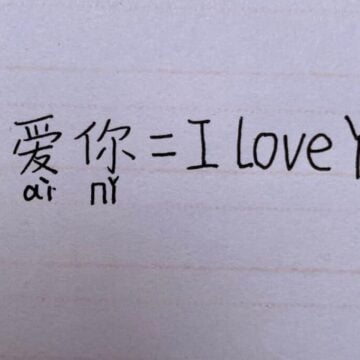 爱你=I Love Y
ài nǐ